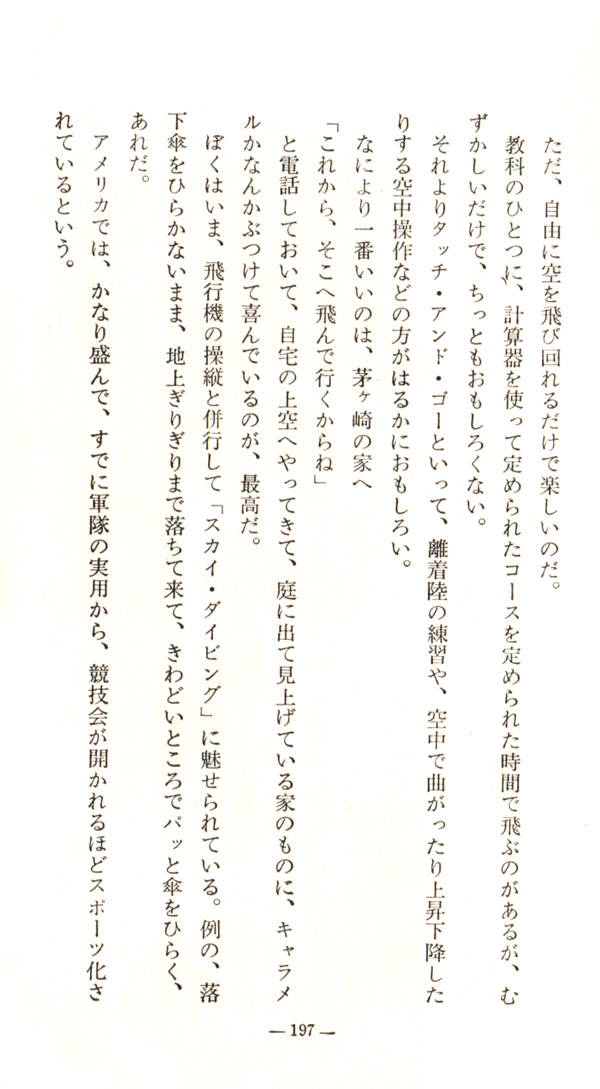 ただ、自由に空を飛び回れるだけで楽しいのだ。
教科のひとつに、計算器を使って定められたコースを定められた時間で飛ぶのがあるが、む
ずかしいだけで、ちっともおもしろくない。
それよりタッチ・アンド・ゴーといって、離着陸の練習や、空中で曲がったり上昇下降した
りする空中操作などの方がはるかにおもしろい。
なにより一番いいのは、茅ヶ崎の家へ
「これから、そこへ飛んで行くからね」
と電話しておいて、自宅の上空へやってきて、庭に出て見上げている家のものに、キャラメ
ルかなんかぶつけて喜んでいるのが、最高だ。
ぼくはいま、飛行機の操縦と併行して「スカイ・ダイビング」に魅せられている。例の、落
下傘をひらかないまま、地上ぎりぎりまで落ちて来て、きわどいところでパッと傘をひらく、
あれだ。
アメリカでは、かなり盛んで、すでに軍隊の実用から、競技会が開かれるほどスポーツ化さ
れているという。
— 197 —